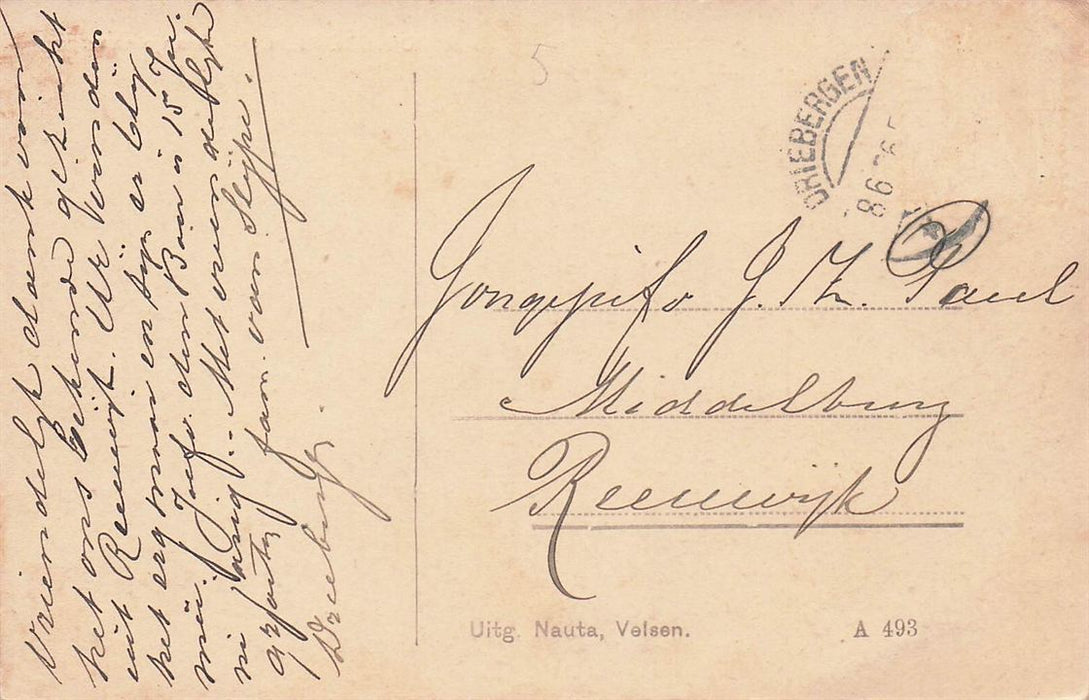 Vriendelijk dank voor
het ons bekende gezicht
uit Reeuwijk. Wij vonden
het erg mooi en zijn er blij
mee. Jonfr. den Boer is 15 Jui
jarig. Met vriendelijke
groeten fam. van Slijpe.
Driebergen.
5
DRIEBERGEN
8 6
Jongejufr J. M. Paul
Middelburg
Reeuwijk
Uitg. Nauta, Velsen.
A 493